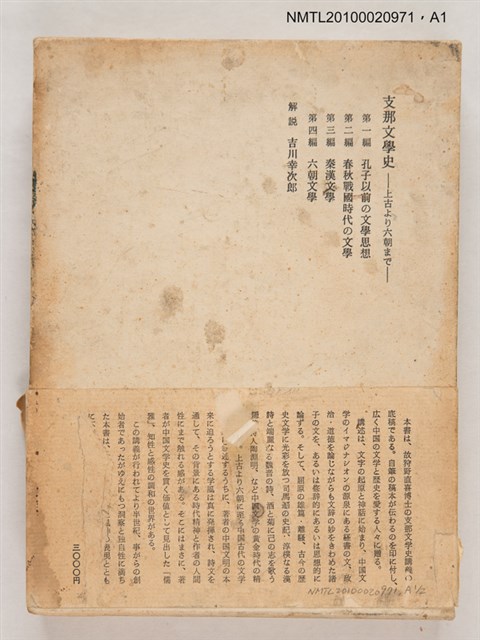 NMTL20100020971，A1
支那文學史 ――上古より六朝まで――
第一編 孔子以前の文學思想
第二編 春秋戰國時代の文學
第三編 秦漢文學
第四編 六朝文學
解説 吉川幸次郎
本書は、故狩野直喜博士の支那文学史講義の
底稿である。自鈔の稿本が伝わるのを印に付し、
広く中国の文学と歴史を愛する人々に贈る。
講述は、文字の起原と神話に始まり、中国文
学のイマジナシオンの源泉にある経書の文、政
治・道徳を論じながらも文辞の妙をきわめた諸
子の文を、あるいは修辞的にあるいは思想的に
論ずる。そして、屈原の雄篇・離騒、古今の歴
史文学に光彩を放つ司馬遷の史記、淳樸なる漢
詩と端麗なる魏晋の詩、酒と菊に己の志を歌う
人陶淵明、など中国文学の黄金時代の精
上古より六朝に至る中国古代の文学
述するうちに、著者の中国文明の本
来に迫ろうとする学風は真に発揮され、詩文を
通して、その背景にある時代精神と作者の人間
性にまで触れる感がある。そこにはまさに、著
者が中国文学史を貫く価値として見出した「儒
雅」、知性と感性の調和の世界がある。
この講義が行われてより半世紀、事がらの創
始者であったがゆえにもつ洞察と独自性に満ち
た本書は、
表現ととも
に、
三〇〇〇円
NMTL20100020971, A1/2